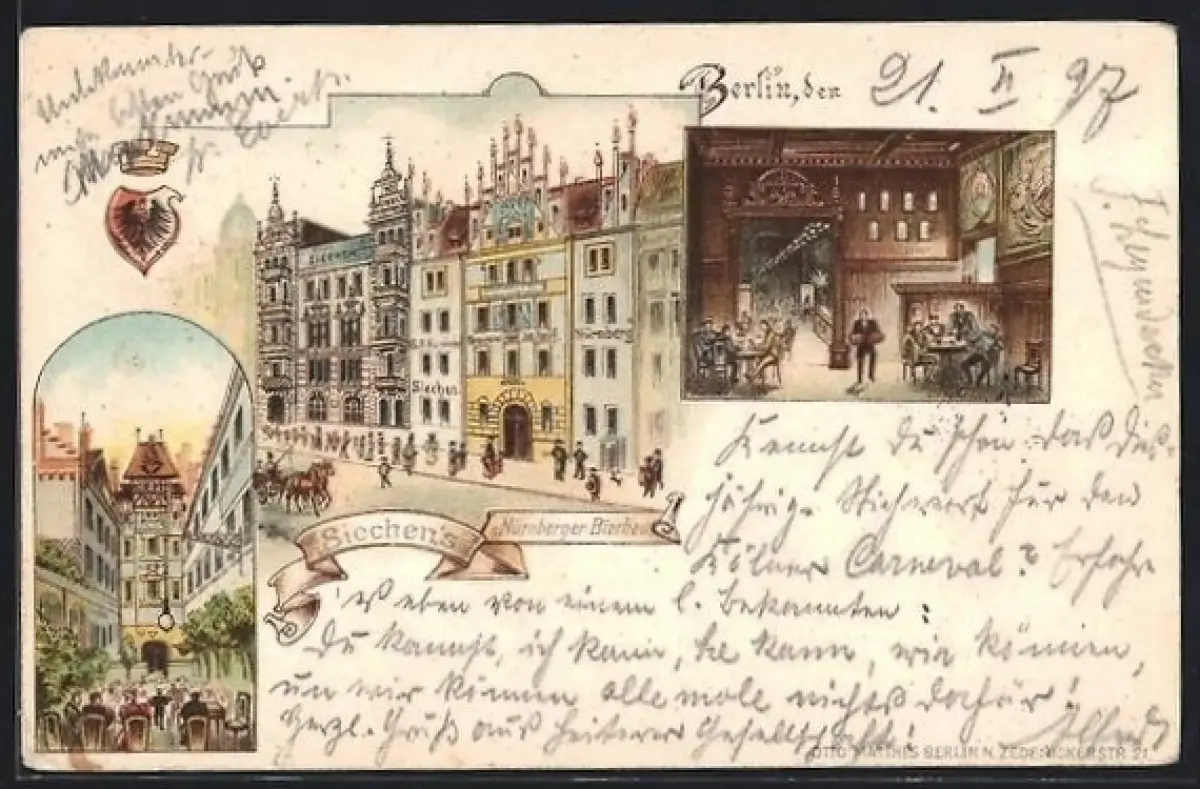 Unbekannter-
besten Gruß
Berlin, den 21. II 97
Siechen
Siechen
Siechen's
Nürnberger Bierhaus
Kennst Du schon das dies-
jährige Stichwort für den
Kölner Carneval? Erfahre
's eben von einem l. Bekannten:
Du kannst, ich kann, he kann, wie können,
un wir können alle mole nichts dafür!
Herzl. Gruß aus heiterer Gesellschaft!
OTTO MATTHES BERLIN N. ZEDENICKERSTR. 21.